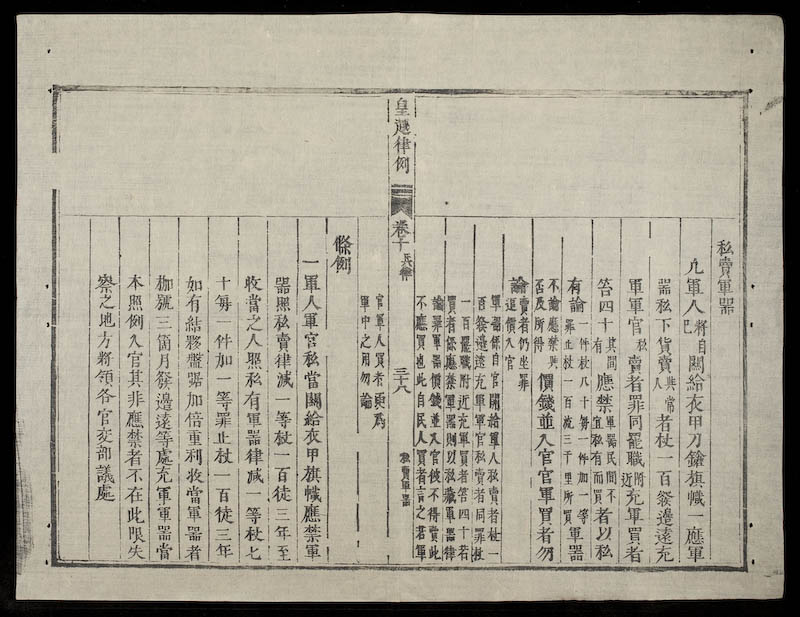 私賣軍器
凡軍人將自己關給衣甲刀鎗旗幟一應軍
器私下貨賣與常人者杖一百發邊遠充
軍軍官私賣者罪同罷職附近充軍買者
笞四十其間有應禁軍器民間不宜私有而買者以私
有論一件杖八十每一件加一等罪止杖一百流三千里所買軍器
不論應禁與否及所得價錢並入官官軍買者勿
論賣者仍坐罪還價入官
軍器係自官關給軍人私賣者杖一
百發邊遠充軍軍官私賣者同罪杖
一百罷職附近充軍買者笞四十若
買者係應禁軍器則以私藏軍器律
論罪軍器價錢並入官彼不得賣此
不應買也此自民人買者言之若軍
皇越律例 卷十 兵律 三十八 私賣軍器
官軍人買者須爲
軍中之用勿論
條例
一軍人軍官私當關給衣甲旗幟應禁軍
器照私賣律減一等杖一百徒三年至
收當之人照私有軍器律減一等杖七
十每一件加一等罪止杖一百徒三年
如有結夥盤踞加倍重利收當軍器者
枷號三箇月發邊遠等處充軍軍器當
本照例入官其非應禁者不在此限失
察之地方將領各官交部議處